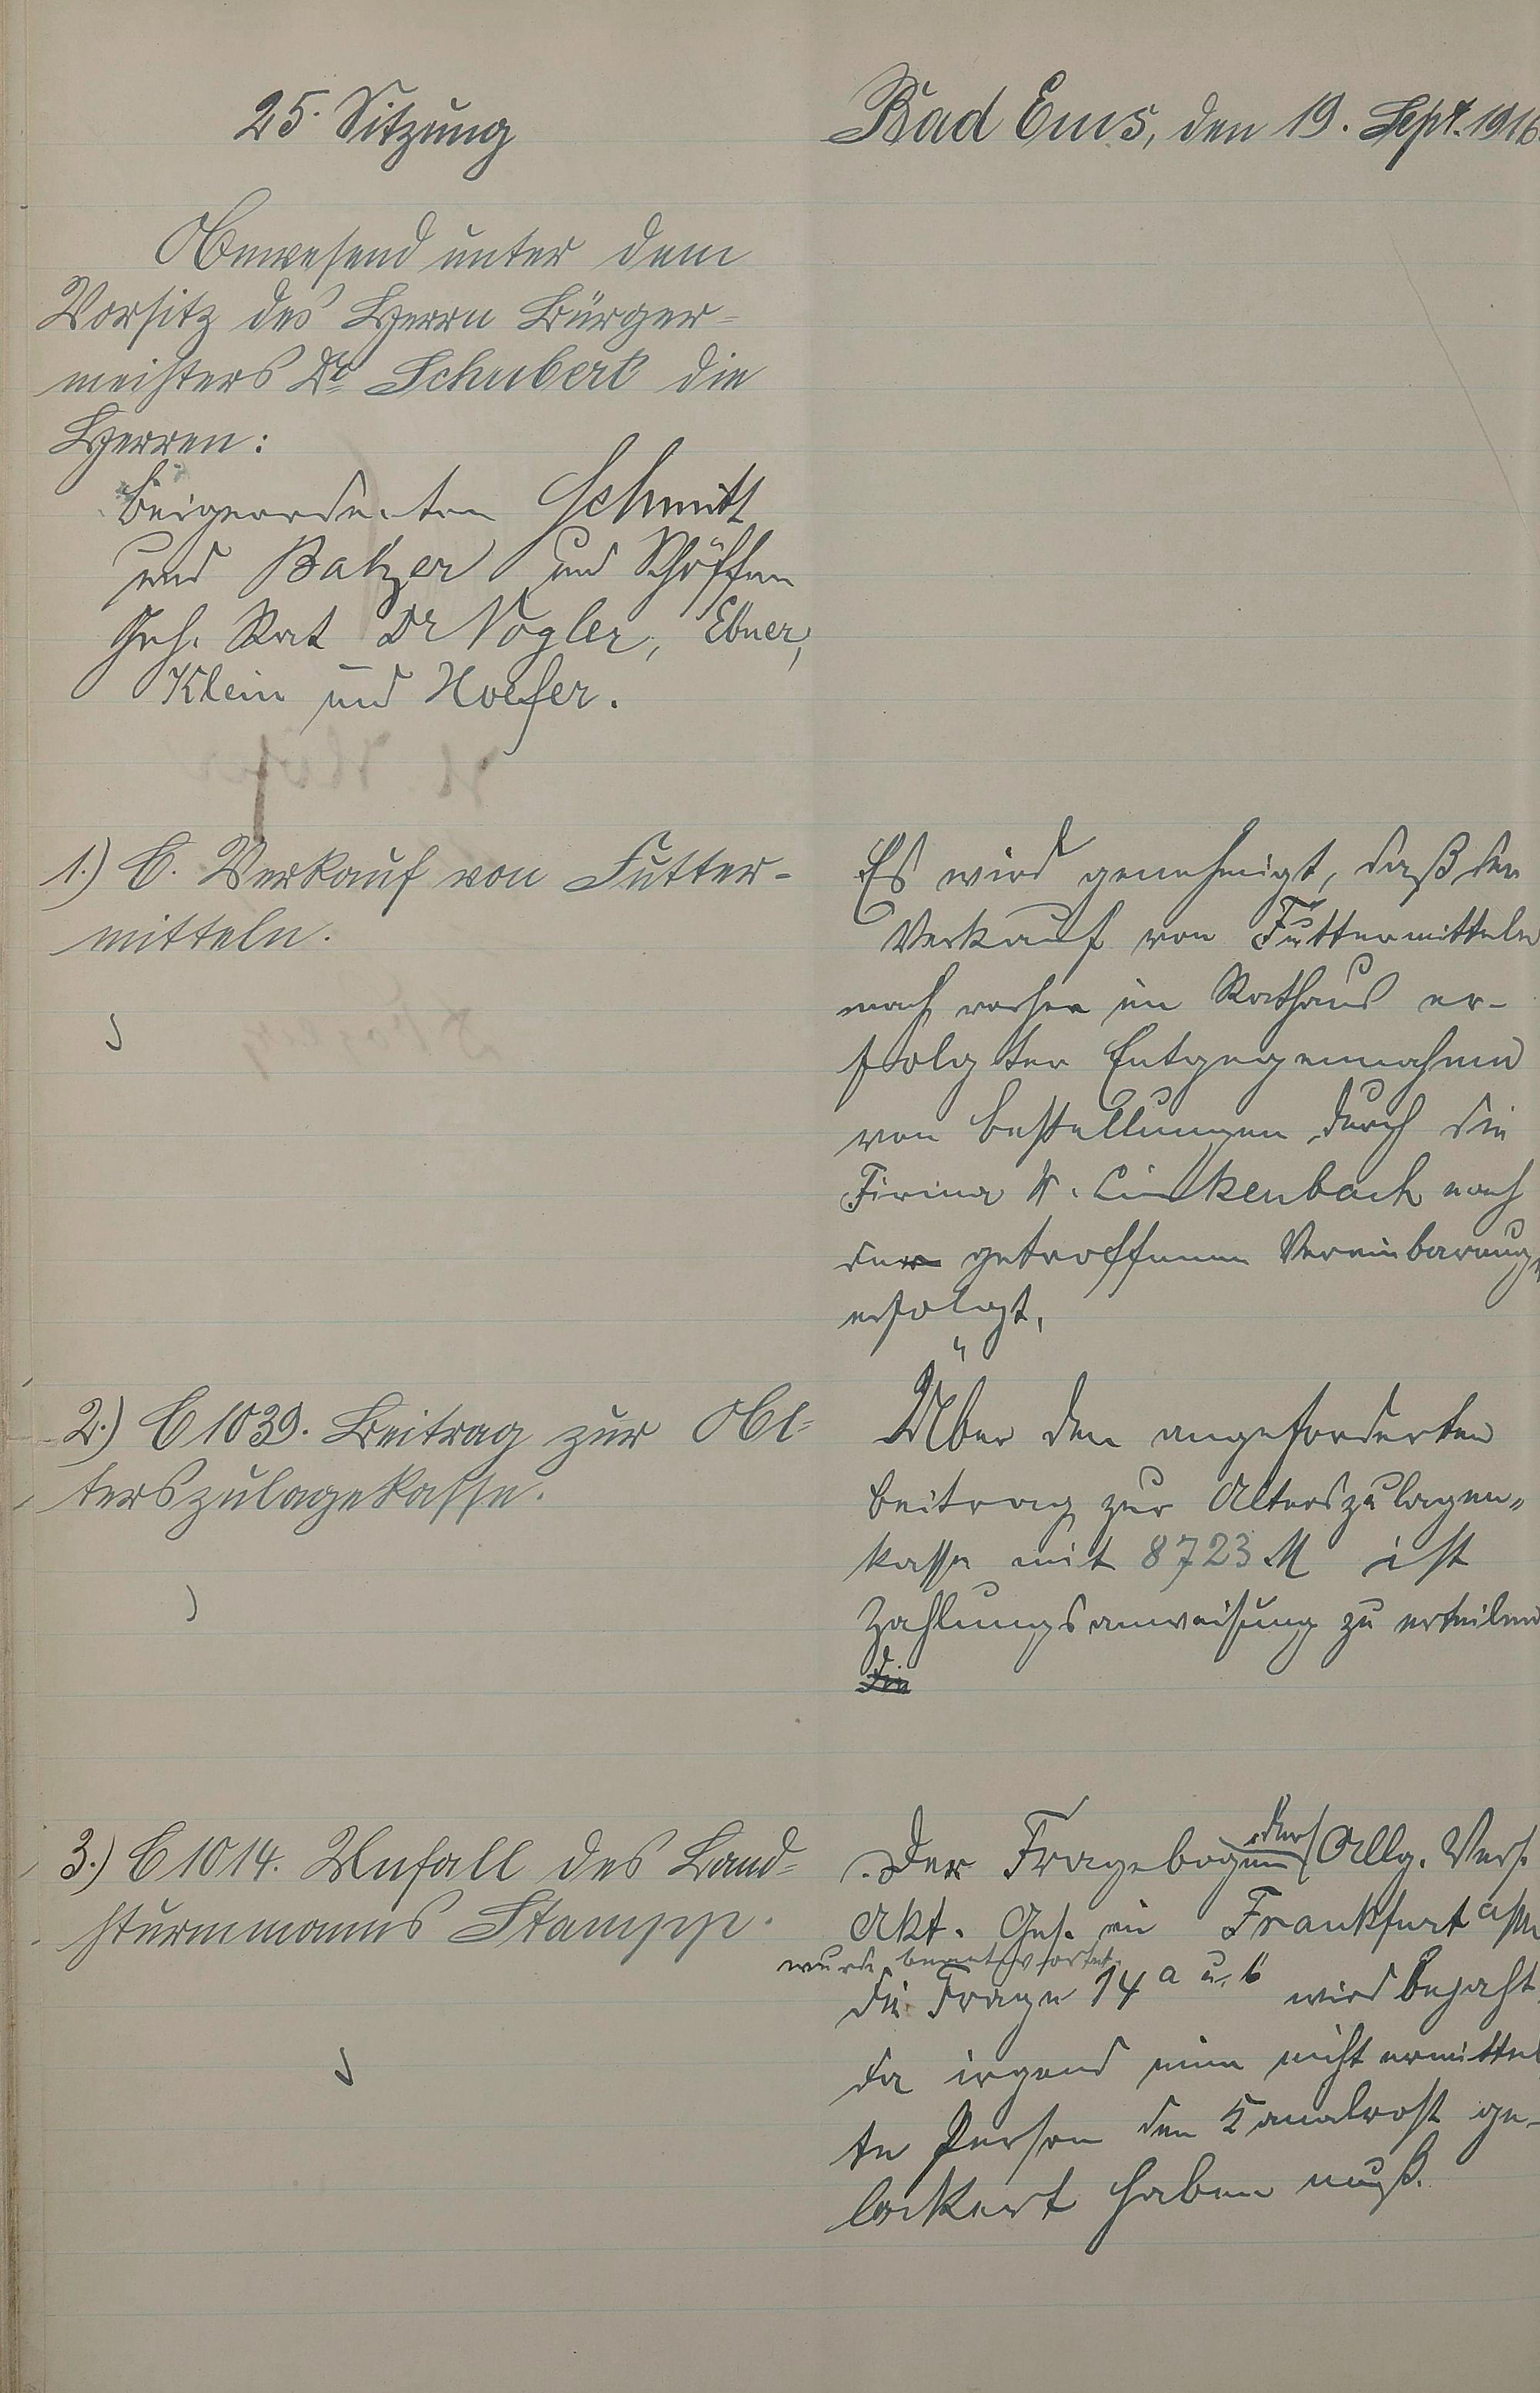 25. Sitzung
Bad Ems, den 19. Sept. 1916
Anwesend unter dem
Vorsitz des Herrn Bürger=
meisters Dr. Schubert die
Herren:
Beigeordneten Schmitt
und Balzer und Schöffen
Geh. Rat Dr Vogler, Ebner,
Klein und Hoefer.
1.) C. Verkauf von Futter-
mitteln.
Es wird genehmigt, daß der
Verkauf von Futtermitteln
nach vorher im Rathaus er-
folgter Entgegennahme
von Bestellungen durch die
Firma K. Linkenbach nach
der getroffenen Vereinbarung
erfolgt.
2.) C 1039. Beitrag zur Al=
terszulagekasse.
Über den angeforderten
Beitrag zur Alterszulagen=
kasse mit 8723 M ist
Zahlungsanweisung zu erteilen
Die
3.) C 1014. Unfall des Land=
sturmmanns Stampp.
Der Fragebogen der Allg. Vers.
Akt. Ges. in Frankfurt a/M
wurde beantwortet.
Die Frage 14 a u. b wird bejaht
da irgend eine nicht ermittel
te Person den Kanalrost ge-
lockert haben muß.